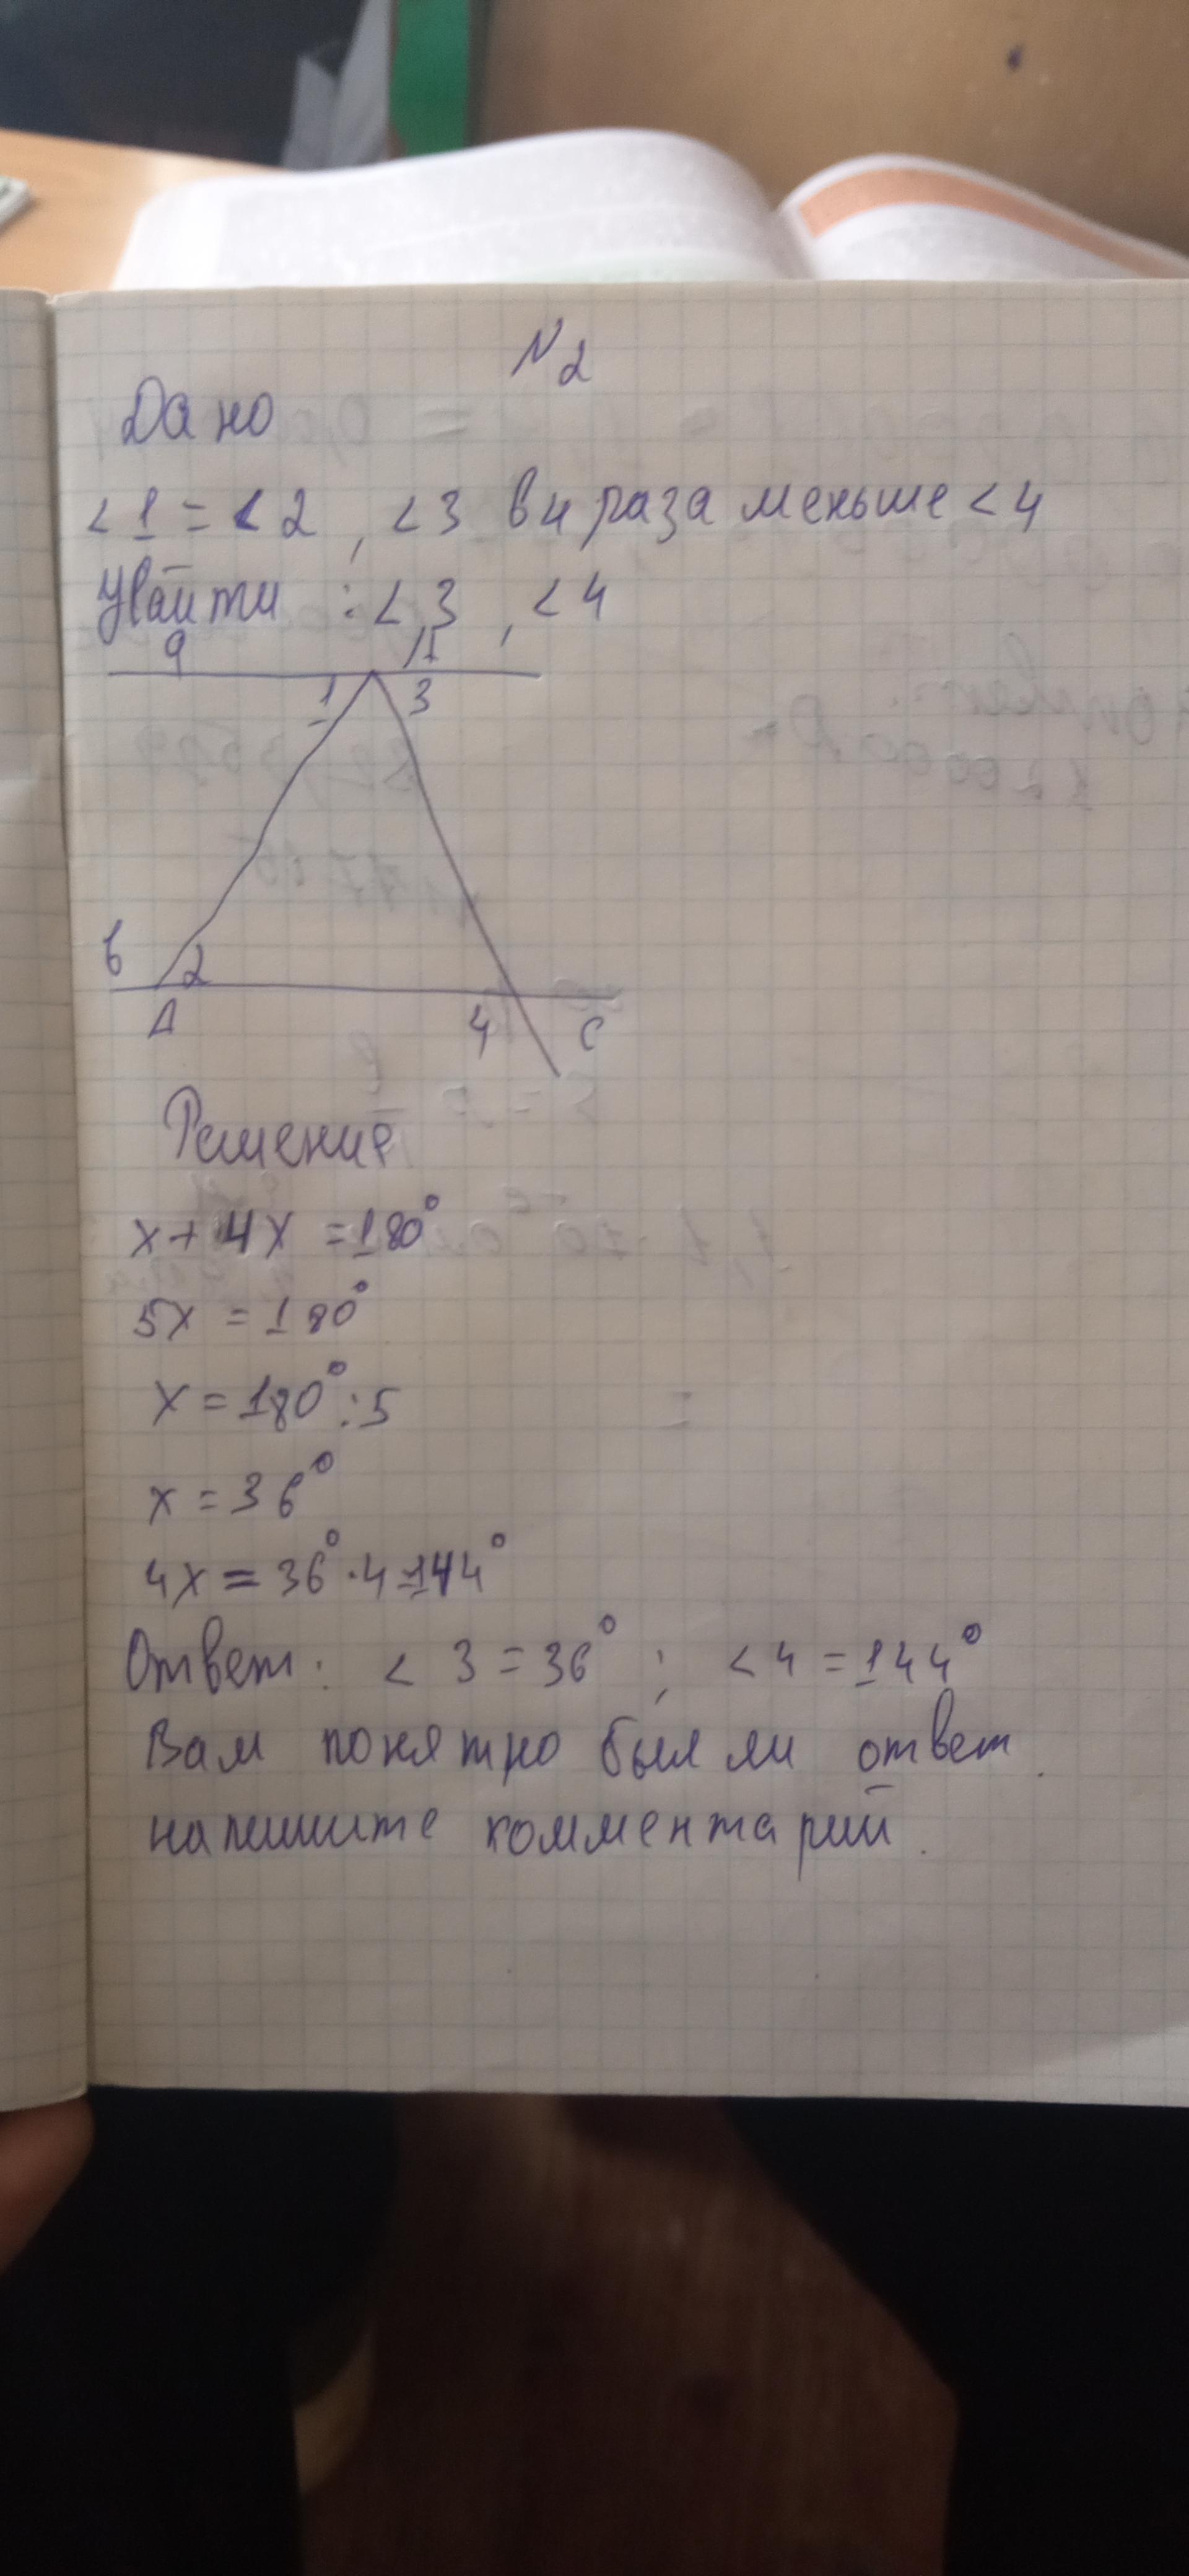 N2
Дано
<1 = <2, <3 в 4 раза меньше <4
: <3, <4
a
1
3
в
2
A
4
C
Решение
x + 4x = 180°
5x = 180°
x = 180° : 5
x = 36°
4x = 36° · 4 = 144°
Ответ: < 3 = 36° ; < 4 = 144°
Вам понятно был ли ответ.
напишите комментарий.